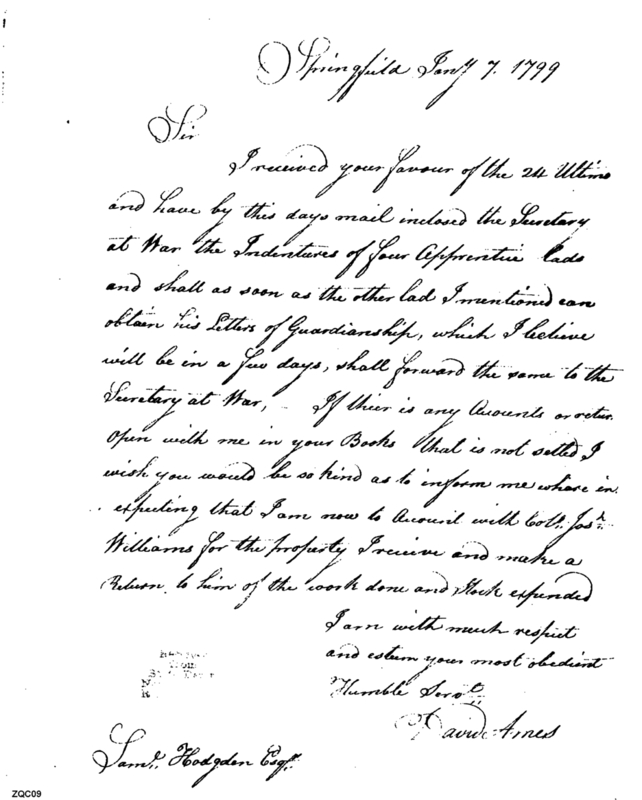 Springfield Jany 7. 1799
Sir
I received your favour of the 24 Ultimo
and have by this days mail inclosed the Secretary
at War the Indentures of four Apprentice lads
and shall as soon as the other lad I mentioned can
obtain his Letters of Guardianship, which I believe
will be in a few days, shall forward the same to the
Secretary at War, - If their is any Accounts or retur
Open with me in your Books that is not settled I
wish you would be so kind as to inform me where in
expecting that I am now to Account with Coll. Josh.
Williams for the property I receive and make a
Return to him of the work done and Stock expended
I am with much respect
and esteem your most obedient
Humble Servt.
David Ames
Saml. Hodgdon Esqr.
ZQC09